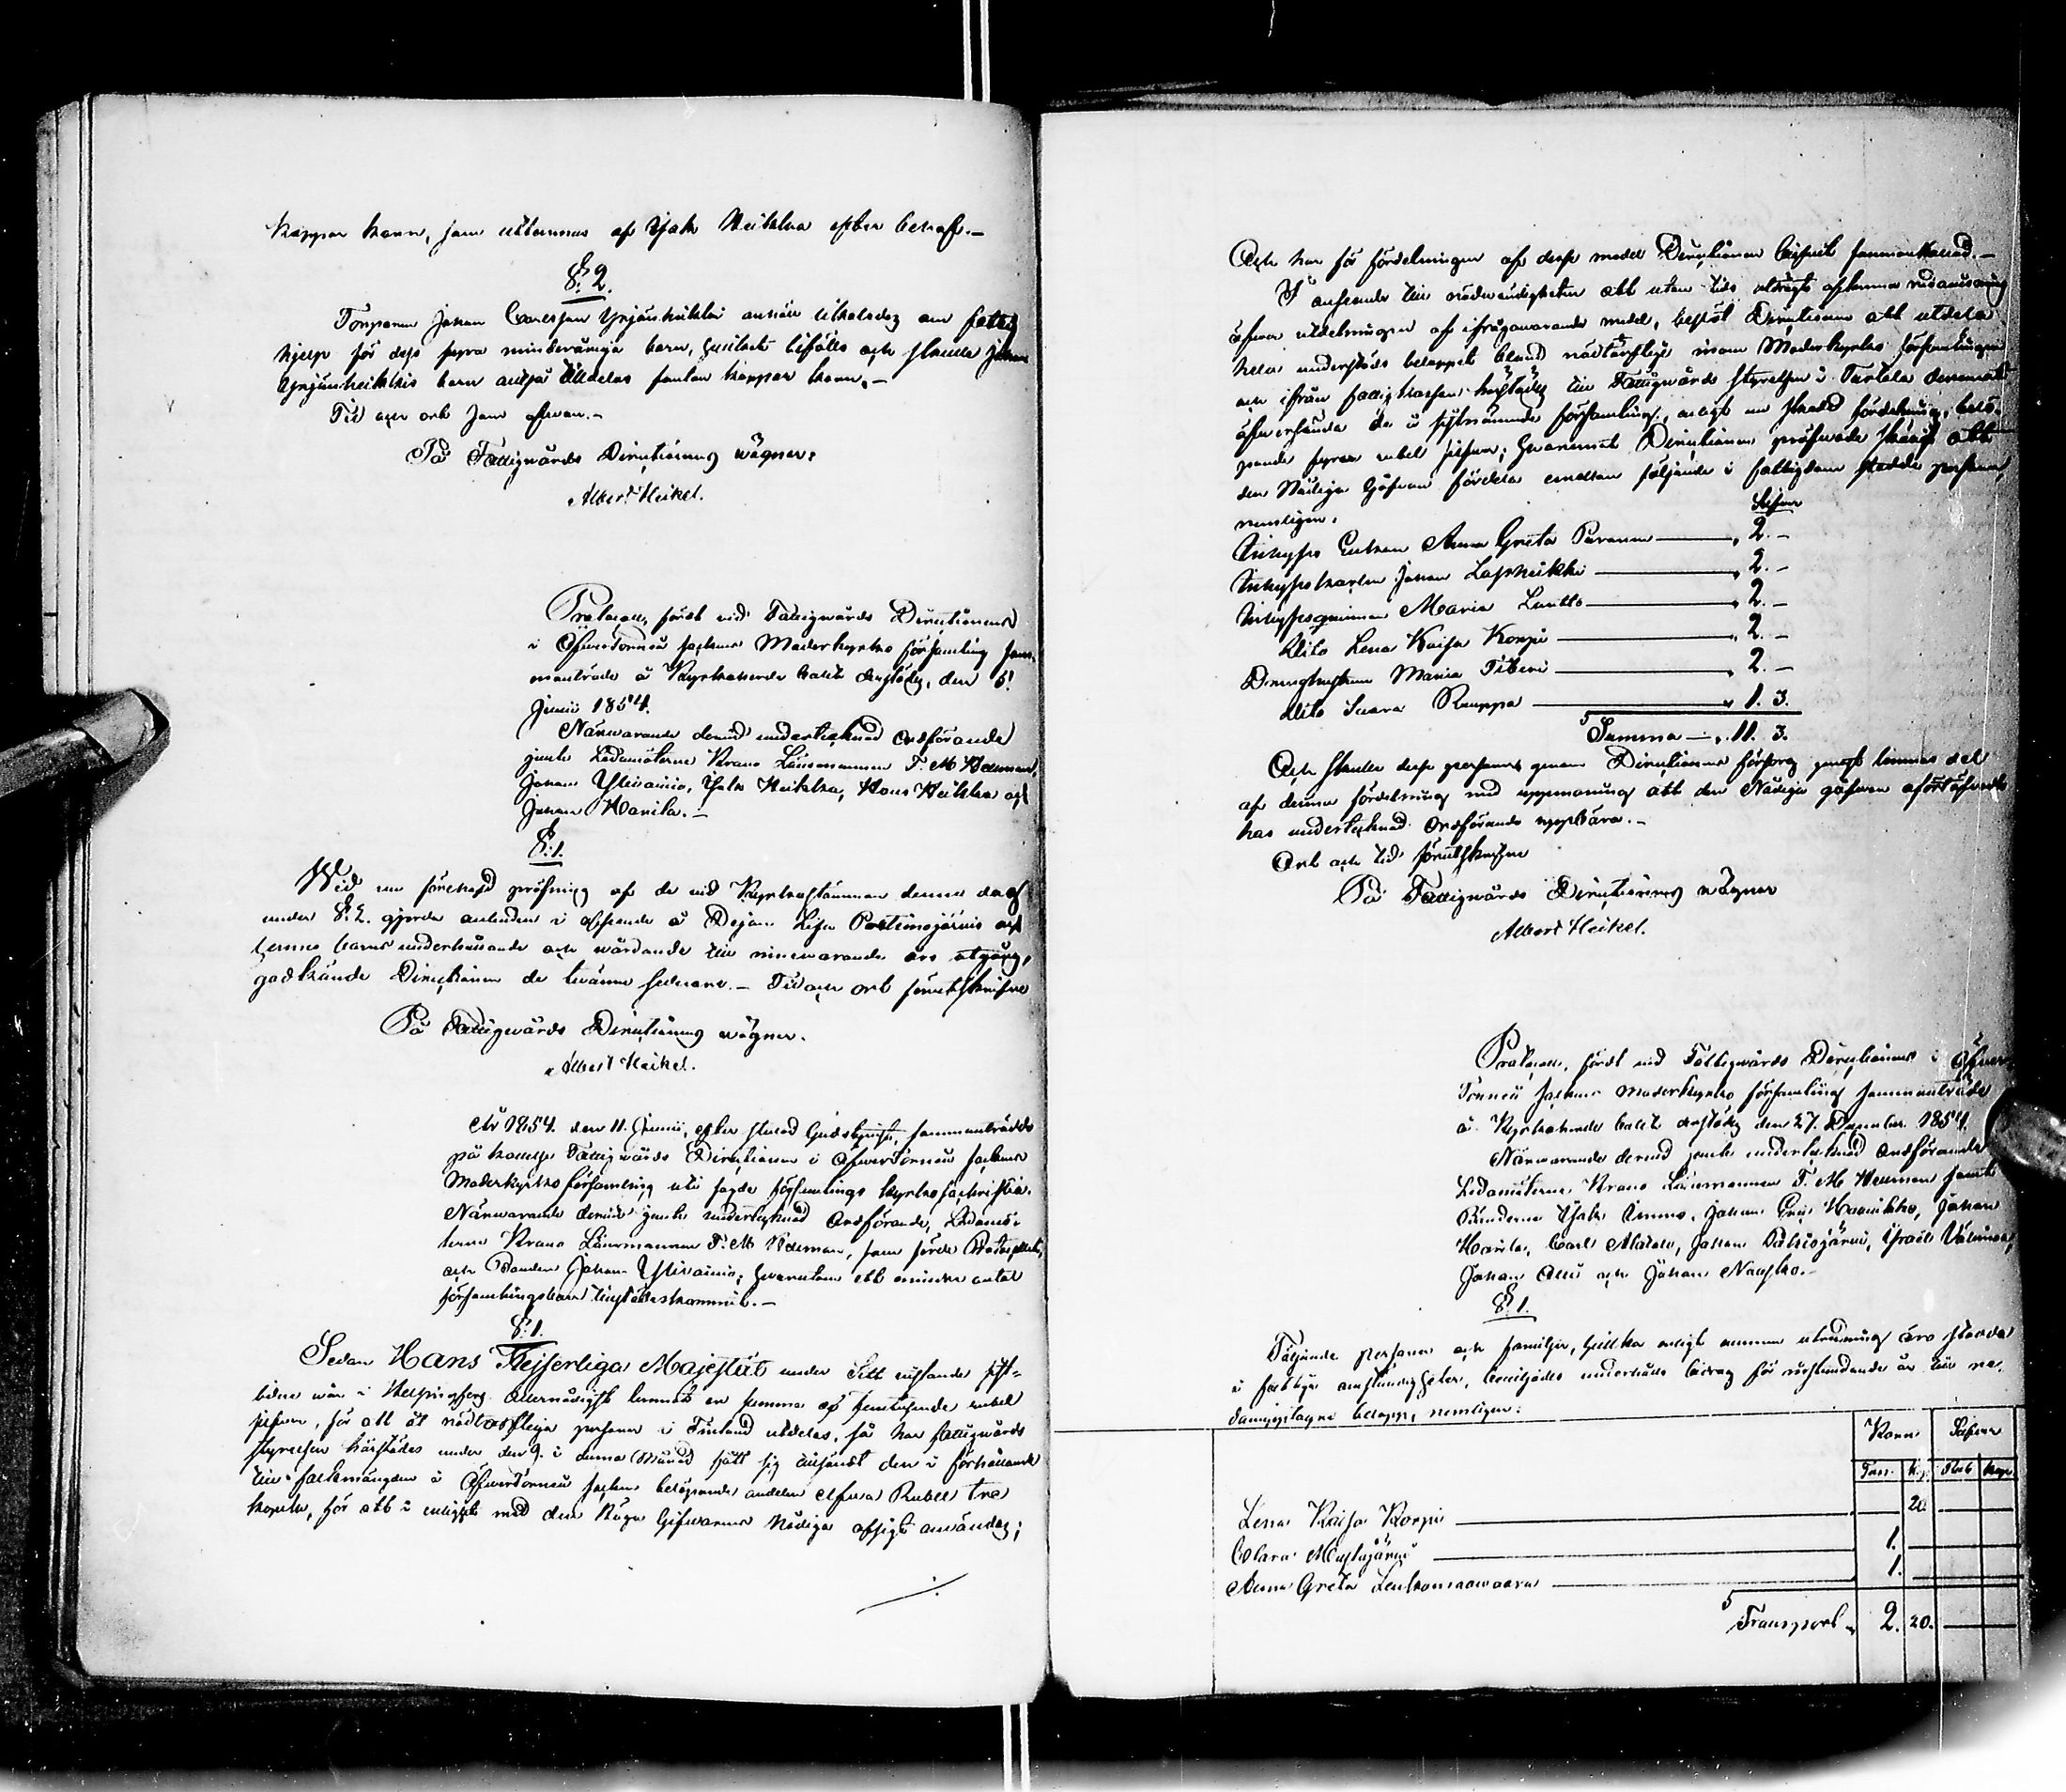 kappar korn, som uttemnas af Isak Heikka efter behof.-
§. 2.
Torparen Johan Carlsson Yrjänheikki anhöll tilholsdag om fattig
hjelp för dess fyra minderåriga barn, hvilket bifölls och skulle Johan
Yrjänheikkis barn alltså tilldelas femton kappar korn.-
Tid och ort som ofvan.-
På Fattigvårds Directionens vägnar:
Albert Heikel.
Protocoll, fördt vid Fattigvårds Directionens
i ÖfverTorneå sockens Moderkyrko församling sam-
manträde å Kyrkoherde bolet derstädes, den 5.
Junii 1854.
Närvarande dervid undertecknad Ordförande
jemte Ledamöterne Krono Länsmannen F. M. Heurman,
Johan Ylivainio, Isak Heikka, Hans Heikka och
Johan Hanila.-
§.1.
Wid nu förehafd pröfning af de vid Kyrkostämman denna dag
under §. 2. gjorda anbuden i afseende å Pojan Lisa Portimojärvis och
hennes barns underhållande och vårdande till innevarande års utgång,
godkände Directionen de tvänne sednare.- Tid och ort förutskrifne
På Fattigvårds Directionens vägnar.
Albert Heikel.
År 1854. den 11. Junii, efter slutad Gudstjenst, sammanträdde
på kallelse Fattigvårds Directionen i ÖfverTorneå sockens
Moderkyrko församling uti sagde församlings kyrko sachristia.
Närvarande dervid jemte undertecknad Ordförande, Ledamö-
terne Krono Länsmannen F. M. Heurman, som förde Protocollet,
och Bonden Johan Ylivainio; hvarutom ett mindre antal
församlingsbor tillstädeskommit.-
§.1.
Sedan Hans Kejserliga Majestät under Sitt vistande sist-
liden vår i Helsingfors Allernådigst lemnat en summa af femtusende rubel
silfver, för att åt nödtorftiga personer i Finland utdelas, så har fattigvårds
styrelsen härstädes under den 9. i denna Månad fått sig tillsändt den i förhållande
till folkmängden å ÖfverTorneå socken belöpande andelen elfva Rubel tre
kopek, för att i enlighet med den Höga Gifvarens Nådiga afsigt användas;
Och har för fördelningen af desse medel Directionen blifvit sammankallad.-
I anseende till nödvändigheten att uten tids utdrägt afkomma redovisning
öfver utdelningen af ifrågavarande medel, beslöt Directionen att utdela
hela understöds beloppet bland nödtorftige inom Moderkyrko församlingen
och ifrån fattigkassan härstädes till Fattigvårds styrelsen i Turtola deremot
öfversända de i sistnämnde församling, enligt nu skedd fördelning, belö-
pande fyra rubel silfver; hvaremot Directionen pröfvade skäligt att
den Nådiga Gåfvan fördela emellan följande i fattigdom stadde personer,
nemligen:
Silfver
Inhyses Enkan Anna Greta Paranen — „ 2. -
Inhyseskarlen Johan Lassheikki — „ 2. -
Inhysesqvinnan Maria Lantto — „ 2. -
Dito Lena Kaisa Korpi — „ 2. -
Drenghustrun Maria Niemi — „ 2. -
Dito Saara Kauppa — „ 1. 3.
Summa — „ 11. 3.
Och skulle desse personer genom Directionens försorg genast lemnas del
af denna fördelning med uppmaning att den Nådiga gåfvan oförtöfvadt
hos undertecknad Ordförande uppbära.-
Ort och tid förutskrifne
På Fattigvårds Directionens vägnar
Albert Heikel.
Protocoll, fördt vid Fattigvårds Directionens i Öfver
Torneå sockens moderkyrko församling sammanträde
å Kyrkoherde bolet derstädes den 27. December 1854.
Närvarande dervid jemte undertecknad Ordförande
Ledamöterne Krono Länsmannen F. M. Heurman samt
Bönderne Isak Aimo, Johan Eric Haanikko, Johan
Hanila, Carl Alatalo, Johan Palojärvi, Israel Välimaa,
Johan Alli och Johan Nautko.-
§. 1.
Följande personer och familjer, hvilka enligt numera utredning äro stadde
i fattiga omständigheter, beviljades underhålls bidrag för nästkommande år till ne-
danupptagne belopp, nemligen:
Korn Silfver
Tunn. Kp. Rub. Kop.
Lena Kaisa Korpi — 20.
Clara Mustajärvi — 1.
Anna Greta Leukumaavaara — 1.
Transport „ 2. 20.